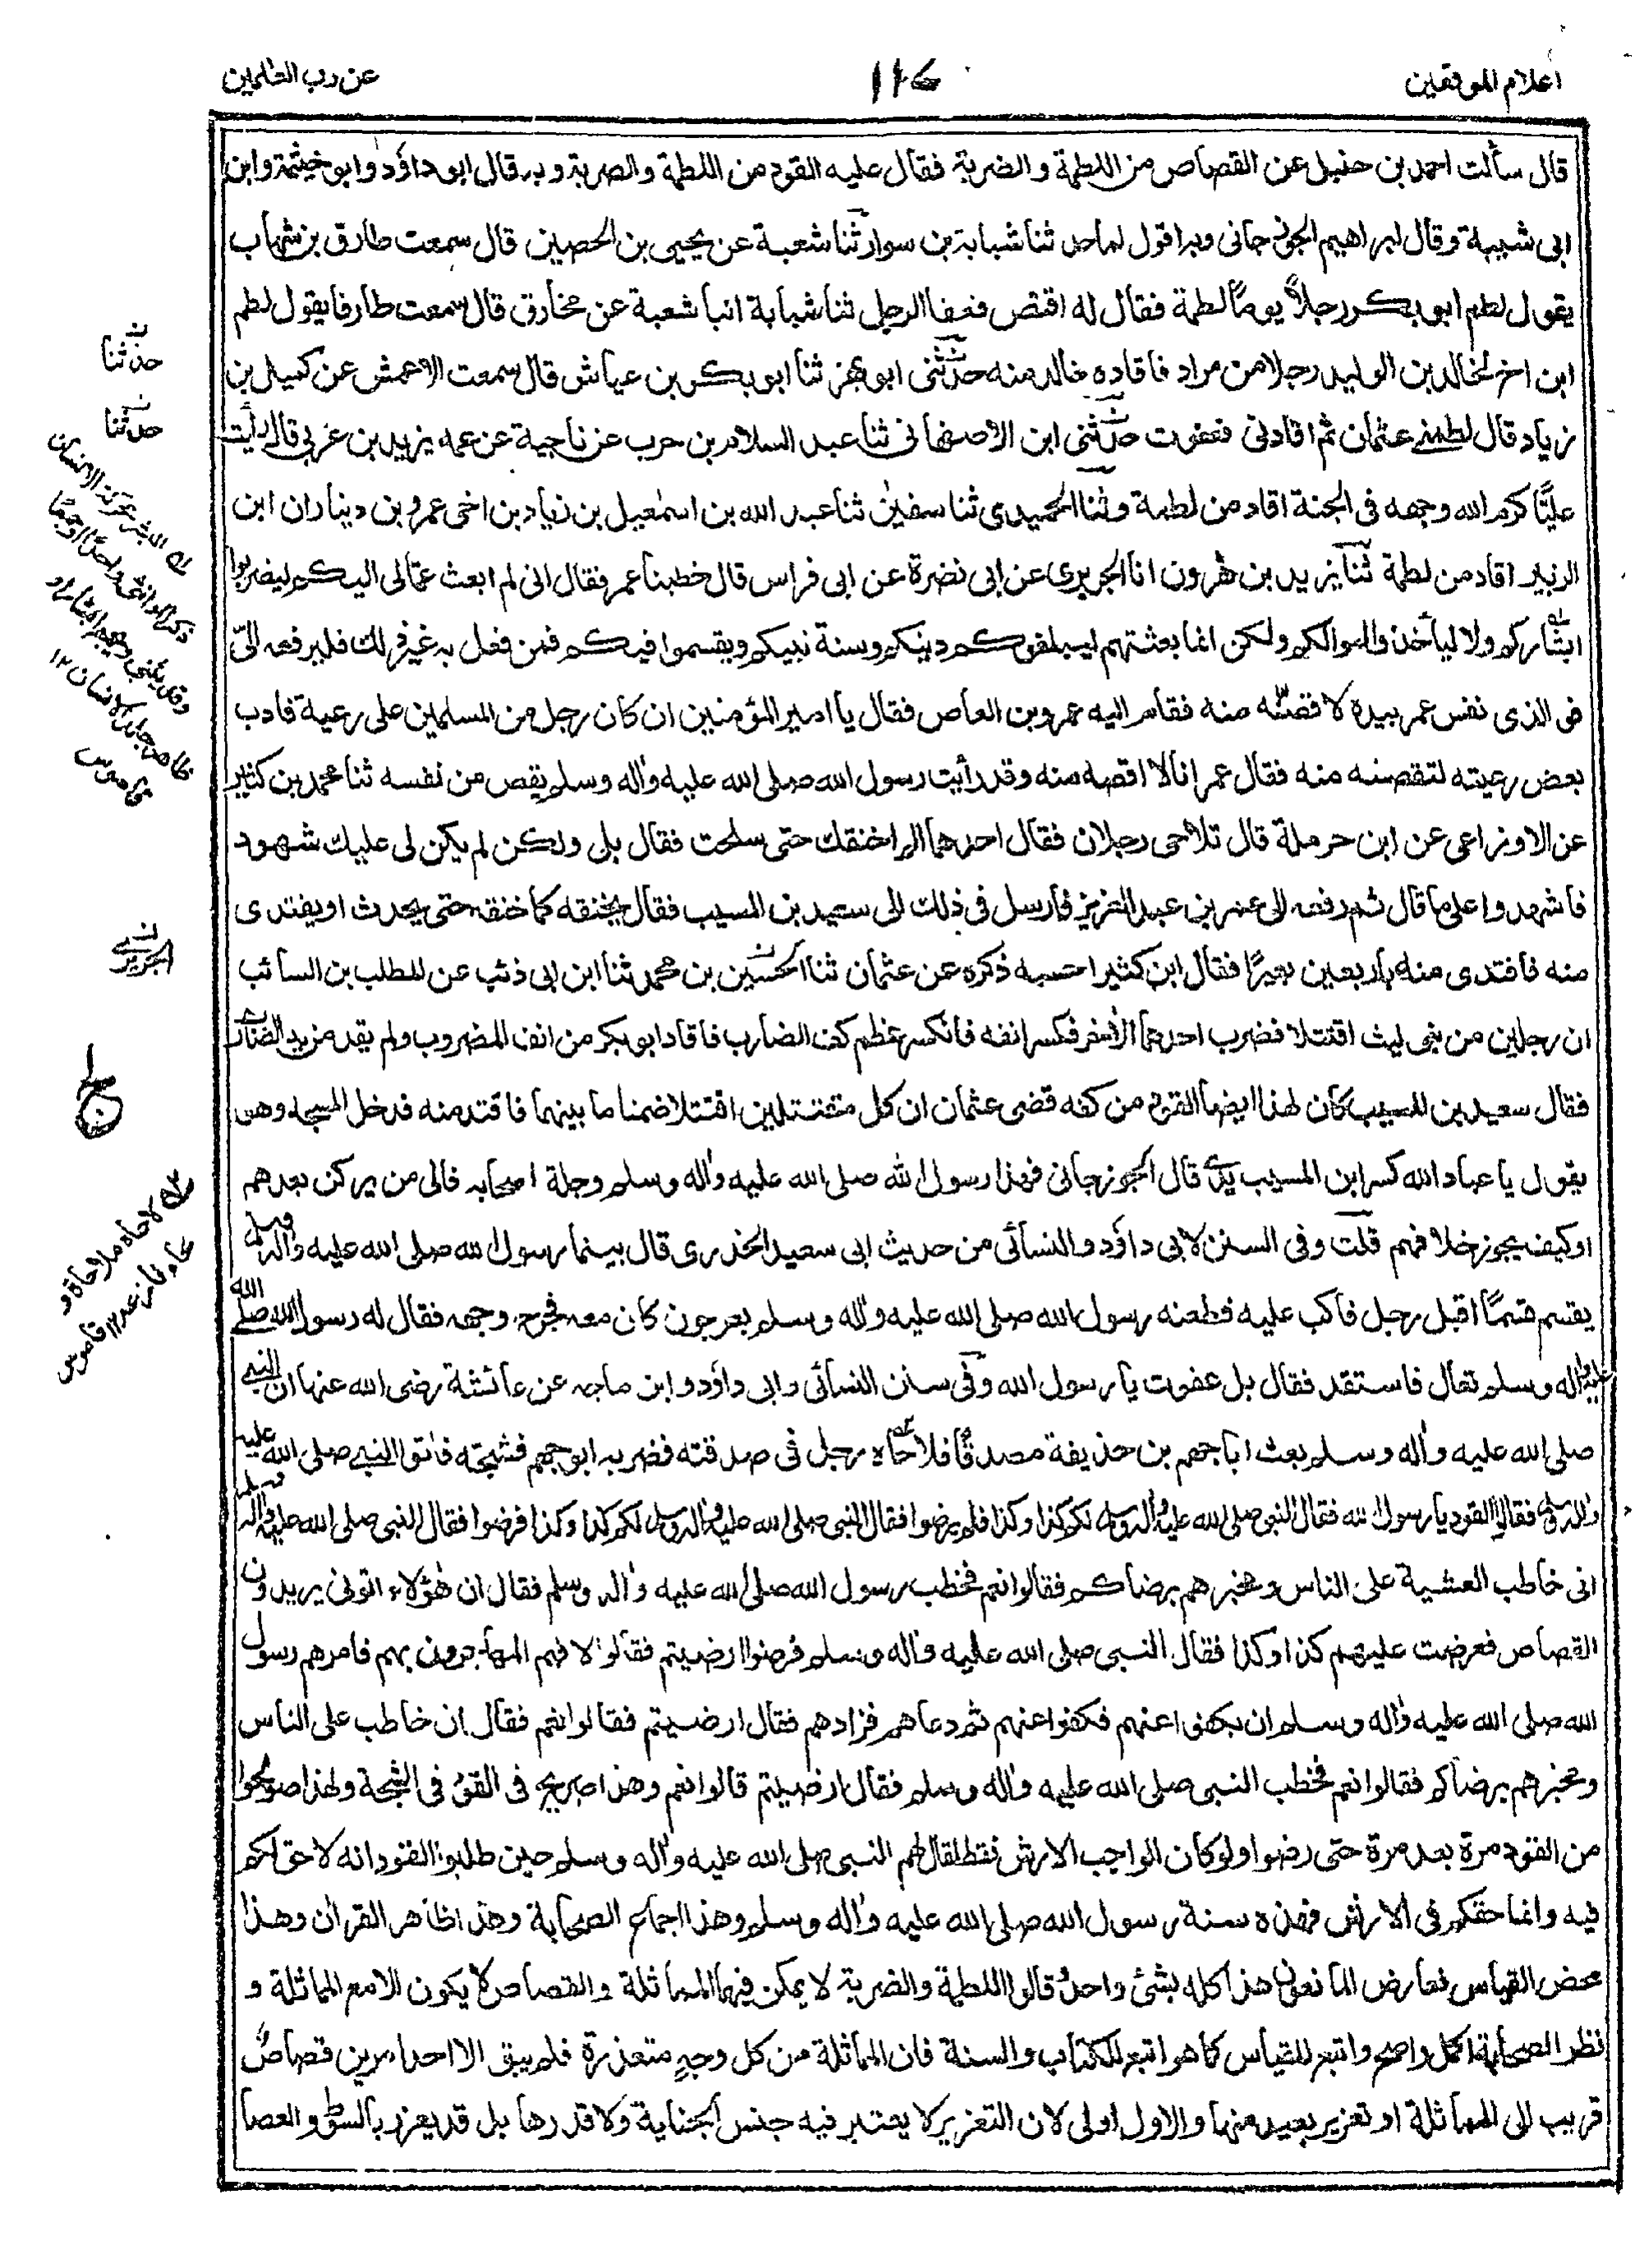 اعلام الموقعين
١١٧
عن رب العلمين
قال سألت احمد بن حنبل عن القصاص من اللطمة والضربة فقال عليه القود من اللطمة والضربة وبه قال ابو داؤد وابو خيثمة وابن
ابى شيبة وقال ابراهيم الجوزجانى وبه اقول لما حد ثنا شبابة بن سوار ثنا شعبة عن يحيى بن الحصين قال سمعت طارق بن شهاب
يقول لطم ابو بكر رجلاً يوماً لطمة فقال له اقتص فعفا الرجل ثنا شبابة انبا شعبة عن مخارق قال سمعت طارقا يقول لطم
ابن اخ لخالد بن الوليد رجلا من مراد فاقاده خالد منه حدثنى ابو بهز ثنا ابو بكر بن عياش قال سمعت الاعمش عن كميل بن
زياد قال لطمنى عثمان ثم اقادنى فعفوت حدثنى ابن الاصفهانى ثنا عبد السلام بن حرب عن ناجية عن عمه يزيد بن عربى قال رأيت
عليًّا كرم الله وجهه فى الجنة اقاد من لطمة وثنا الحميدى ثنا سفين ثنا عبد الله بن اسمعيل بن زياد بن اخى عمرو بن دينار ان ابن
الزبير اقاد من لطمة ثنا يزيد بن هرون انا الجريرى عن ابى نضرة عن ابى فراس قال خطبنا عمر فقال انى لم ابعث عمالى اليكم ليضربوا
ابشاركم ولا لياخذوا اموالكم ولكن انما بعثتهم ليبلغوكم دينكم وسنة نبيكم ويقسموا فيكم فمن فعل به غير ذلك فليرفعه الىّ
فو الذى نفس عمر بيده لاقصنّه منه فقام اليه عمرو بن العاص فقال يا امير المؤمنين ان كان رجل من المسلمين على رعية فادب
بعض رعيته لتقصنه منه فقال عمر انا لا اقصه منه وقد رأيت رسول الله صلى الله عليه واله وسلم يقص من نفسه ثنا محمد بن كثير
عن الاوزاعى عن ابن حرملة قال تلاحى رجلان فقال احدهما الم اخنقك حتى سلحت فقال بلى ولكن لم يكن لى عليك شهود
فاشهدوا على ما قال ثم رفعه الى عمر بن عبد العزيز فارسل فى ذلك الى سعيد بن المسيب فقال يخنقه كما خنقه حتى يحدث او يفتدى
منه فافتدى منه باربعين بعيرًا فقال ابن كثير احسبه ذكره عن عثمان ثنا الحسين بن محمد ثنا ابن ابى ذئب عن المطلب بن السائب
ان رجلين من بنى ليث اقتتلا فضرب احدهما الأخر فكسر انفه فانكسر عظم كف الضارب فاقاد ابو بكر من انف المضروب ولم يقد من يد الضارب
فقال سعيد بن المسيب كان لهذا ايضا القود من كفه قضى عثمان ان كل مقتتلين اقتتلا ضمنا ما بينهما فاقتد منه فدخل المسجد وهو
يقول يا عباد الله كسر ابن المسيب يدى قال الجوزجانى فهذا رسول الله صلى الله عليه واله وسلم وجلة اصحابه فالى من يركن بعدهم
او كيف يجوز خلافهم قلت وفى السنن لابى داؤد والنسائى من حديث ابى سعيد الخدرى قال بينما رسول الله صلى الله عليه واله وسلم
يقسم قسمًا اقبل رجل فاكب عليه فطعنه رسول الله صلى الله عليه واله وسلم بعرجون كان معه فجرح وجهه فقال له رسول الله صلى الله
عليه واله وسلم تعال فاستقد فقال بل عفوت يا رسول الله وفى سنن النسائى وابى داؤد وابن ماجه عن عائشة رضى الله عنها ان النبى
صلى الله عليه واله وسلم بعث ابا جهم بن حذيفة مصدقًا فلاحاه رجل فى صدقته فضربه ابو جهم فشجه فاتوا النبى صلى الله عليه
واله وسلم فقالوا القود يا رسول الله فقال النبى صلى الله عليه واله وسلم لكم كذا وكذا فلم يرضوا فقال النبى صلى الله عليه واله وسلم لكم كذا وكذا فرضوا فقال النبى صلى الله عليه واله وسلم
انى خاطب العشية على الناس ومخبرهم برضاكم فقالوا نعم فخطب رسول الله صلى الله عليه واله وسلم فقال ان هؤلاء اتونى يريدون
القصاص فعرضت عليهم كذا وكذا فقال النبى صلى الله عليه واله وسلم فرضوا ارضيتم فقالوا لا فهم المهاجرون بهم فامرهم رسول
الله صلى الله عليه واله وسلم ان يكفوا عنهم فكفوا عنهم ثم دعاهم فزادهم فقال ارضيتم فقالوا نعم فقال ان خاطب على الناس
ومخبرهم برضاكم فقالوا نعم فخطب النبى صلى الله عليه واله وسلم فقال ارضيتم قالوا نعم وهذا صريح فى القود فى الشجة ولهذا صولحوا
من القود مرة بعد مرة حتى رضوا ولو كان الواجب الارش فقط لقال لهم النبى صلى الله عليه واله وسلم حين طلبوا القود انه لا حق لكم
فيه وانما حقكم فى الارش فهذه سنة رسول الله صلى الله عليه واله وسلم وهذا اجماع الصحابة وهذا ظاهر القران وهذا
محض القياس فعارض المانعون هذا كله بشئ واحد قالوا اللطمة والضربة لا يمكن فيها المماثلة والقصاص لا يكون الا مع المماثلة و
نظر الصحابة اكمل واصح واتبع للقياس كما هو اتبع للكتاب والسنة فان المماثلة من كل وجهٍ متعذرة فلم يبق الا احد امرين قصاصٌ
قريب الى المماثلة او تعزير بعيد منها والاول اولى لان التعزير لا يعتبر فيه جنس الجناية ولا قدرها بل قد يعزر بالسوط والعصا
حدثنا
حدثنا
الجريرى
لاحاه ملاحاة و
لحاء نازعه ١٢ قاموس